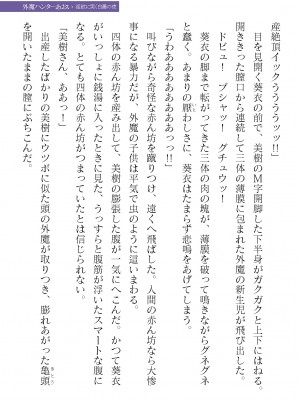 外魔ハンターあおい
産絶頂イックううううッッ!!」
目を見開く葵衣の前で、美樹のM字開脚した下半身がガクガクと上下にはねる。
開ききった膣口から連続して三体の薄膜に包まれた外魔の新生児が飛び出した。
ドビュー! ブシャッ! グチュウッ!
葵衣の脚まで転がってきた三体の肉の塊が、薄膜を破って鳴きながらグネグネ
と蠢く。あまりの厭わしさに、葵衣はたまらず悲鳴をあげてしまう。
「うわああああああぁっ!!」
叫びながら奇怪な赤ん坊を蹴りつけ、遠くへ飛ばした。人間の赤ん坊なら大惨
事になる暴力だが、外魔の子供は平気で虫のように這いまわる。
四体の赤ん坊を産み出して、美樹の膨張した腹が一気にへこんだ。かつて葵衣
がいっしょに銭湯に入ったときに見た、うっすらと腹筋が浮いたスマートな腹に
なる。とても四体の赤ん坊がつまっていたとは信じられない。
「美樹さん、ああっ!」
出産したばかりの美樹にウツボに似た頭の外魔が取りつき、膨れあがった亀頭
を開いたままの膣にぶちこんだ。